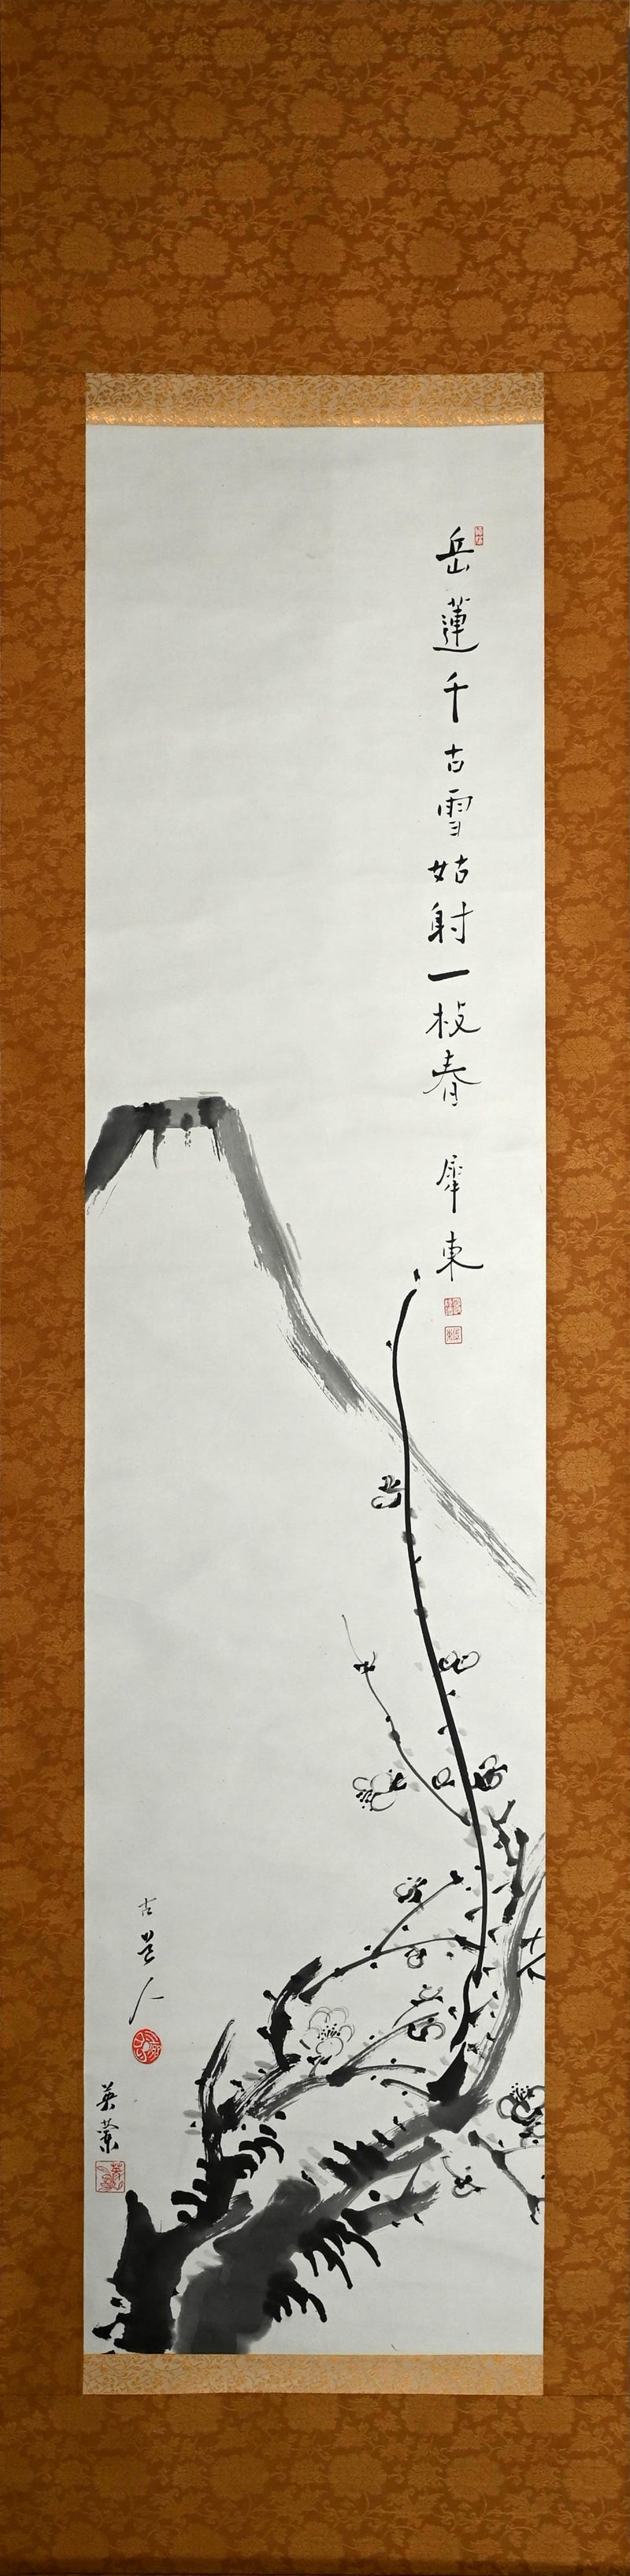 岳蓮千古雪姑射一枝春 犀東
古道人
英業